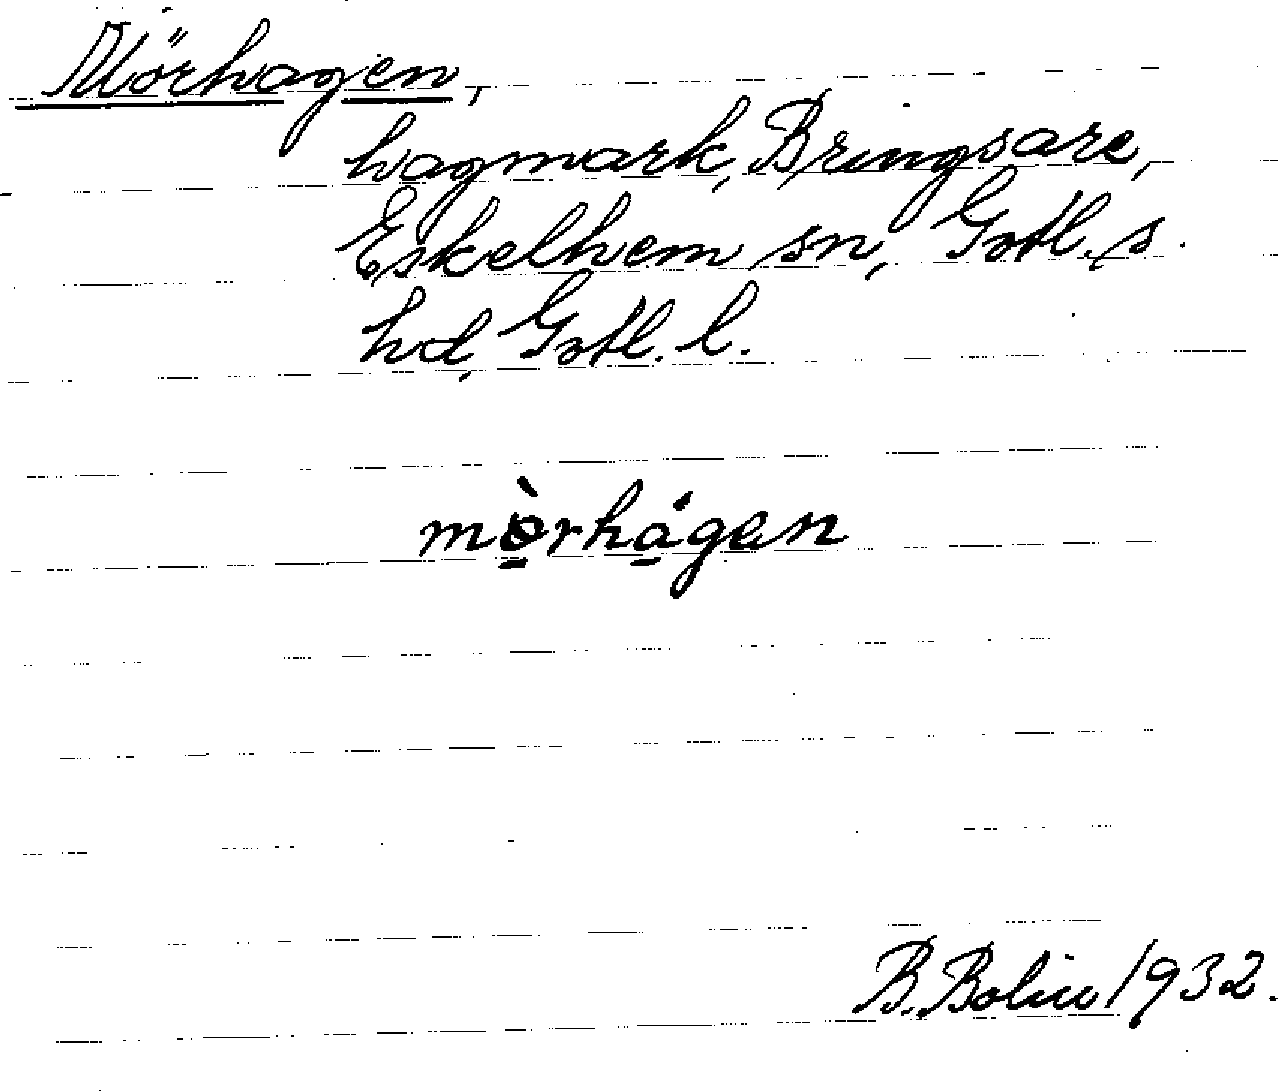 Mörhagen,
hagmark, Bringsare,
Eskelhem sn, Gotl. s.
hd, Gotl. l.
mò̱rhá̱gen
B. Bolin 1932.